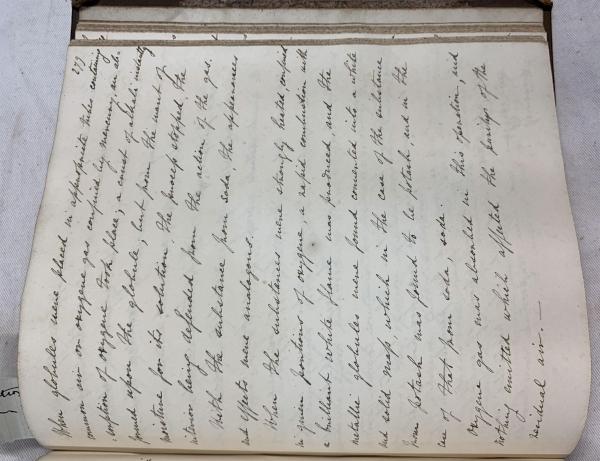 279
When globules were placed in appropriate tubes containing
common air or oxygene gas confined by mercury, an ab-
-sorption of oxygene took place; a crust of alkali instantly
formed upon the globule; but from the want of
moisture for its solution, the process stopped, the
interior being defended from the action of the gas.
With the substance from soda, the appearances
and effects were analogous.
When the substances were strongly heated, confined
in given portions of oxygene, a rapid combustion with
a brilliant white flame was produced, and the
metallic globules were found converted into a white
and solid mass, which in the case of the substance
from potash was found to be potash, and in the
case of that from soda, soda.
Oxygene gas was absorbed in this operation, and
nothing emitted which affected the purity of the
residual air. —